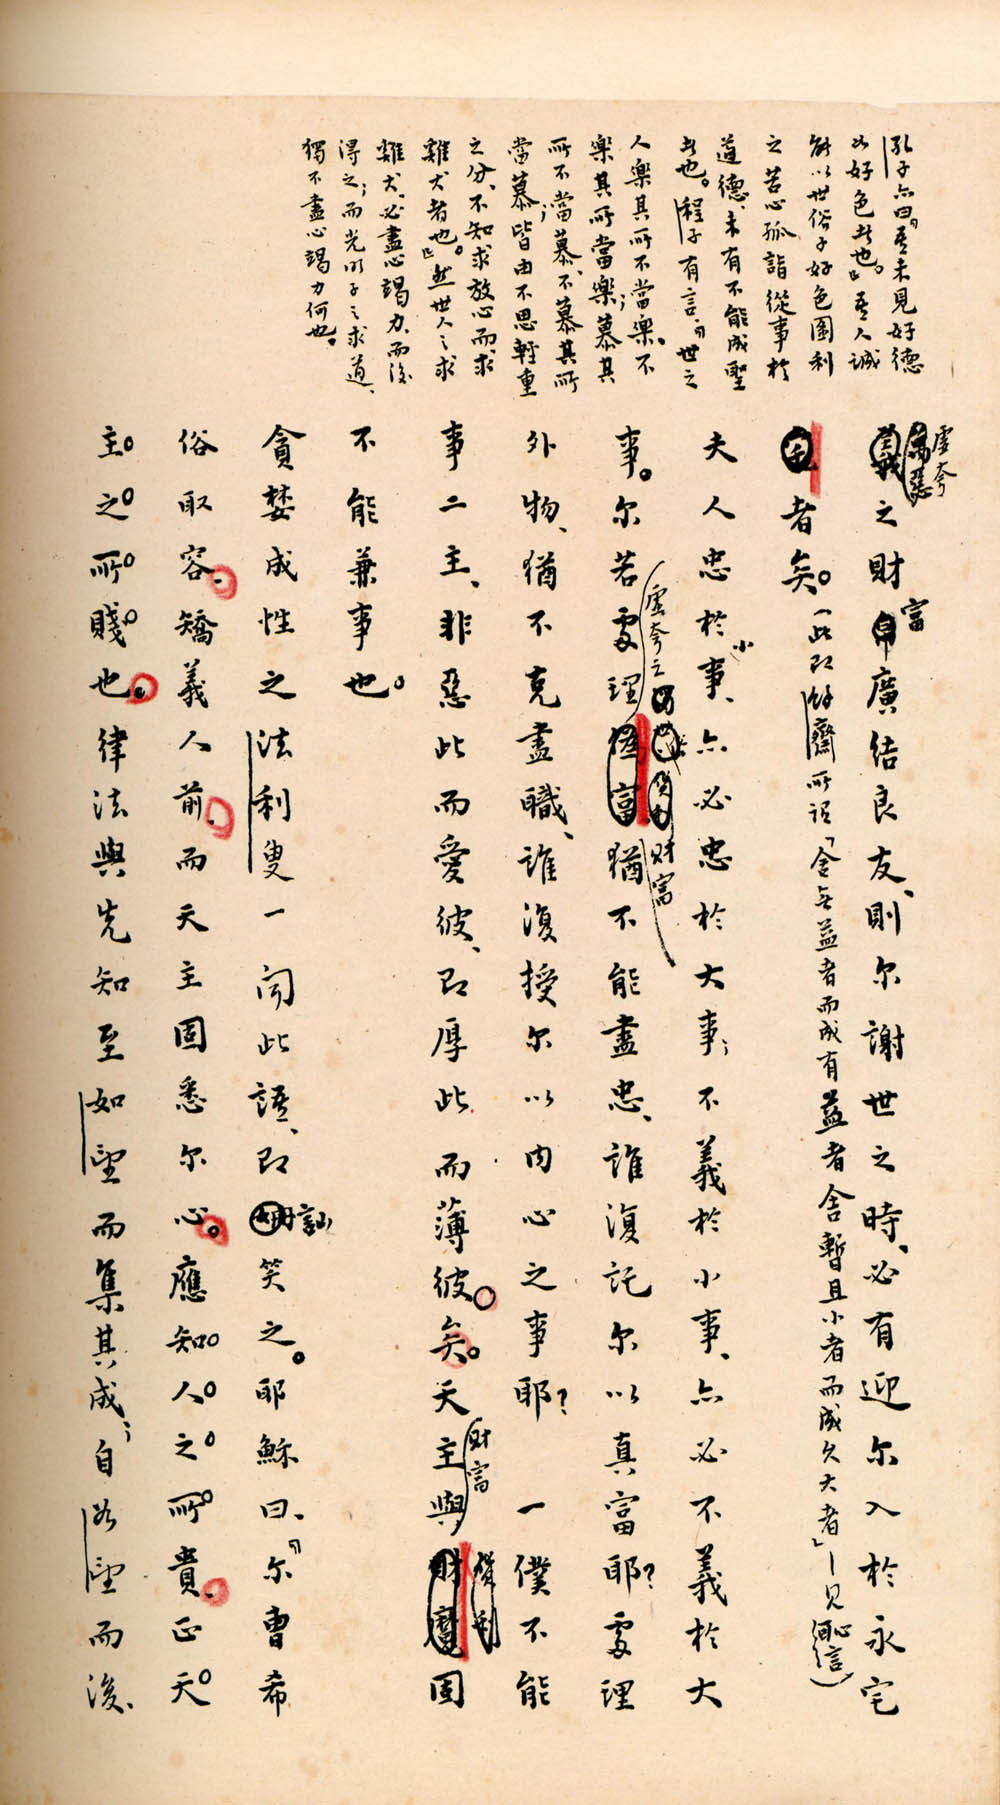 孔子亦曰。『吾未見好德
如好色者也。』吾人誠
能以世俗子好色圖利
之苦心孤詣從事於
道德、未有不能成聖
者也。程子有言、『世之
人樂其所不當樂。不
樂其所當樂；慕其
所不當慕、不慕其所
當慕；皆由不思輕重
之分、不知求放心而求
雞犬者也。』然世人之求
雞犬、必盡心竭力、而後
得之；而光明子之求道、
獨不盡心竭力何也。
虛夸
之財富廣結良友、則尔謝世之時、必有迎尔入於永宅
者矣。（此即𥙿齋所謂『舍無益者而成有益者舍暫且小者而成久大者』—見恒心信）
夫人忠於小事、亦必忠於大事；不義於小事、亦必不義於大
事。尔若處理虛夸之財富猶不能盡忠、誰復託尔以真富耶？處理
外物、猶不克盡職、誰復授尔以內心之事耶？一僕不能
事二主、非惡此而愛彼、即厚此而薄彼。矣。天主與財富固
不能兼事也。
貪婪成性之法利叟一聞此語、即訕笑之。耶穌曰、『尔曹希
俗取容。矯義人前。而天主固悉尔心。應知人之所貴。正天
主之所賤也。律法與先知至如望而集其成；自如望而後、